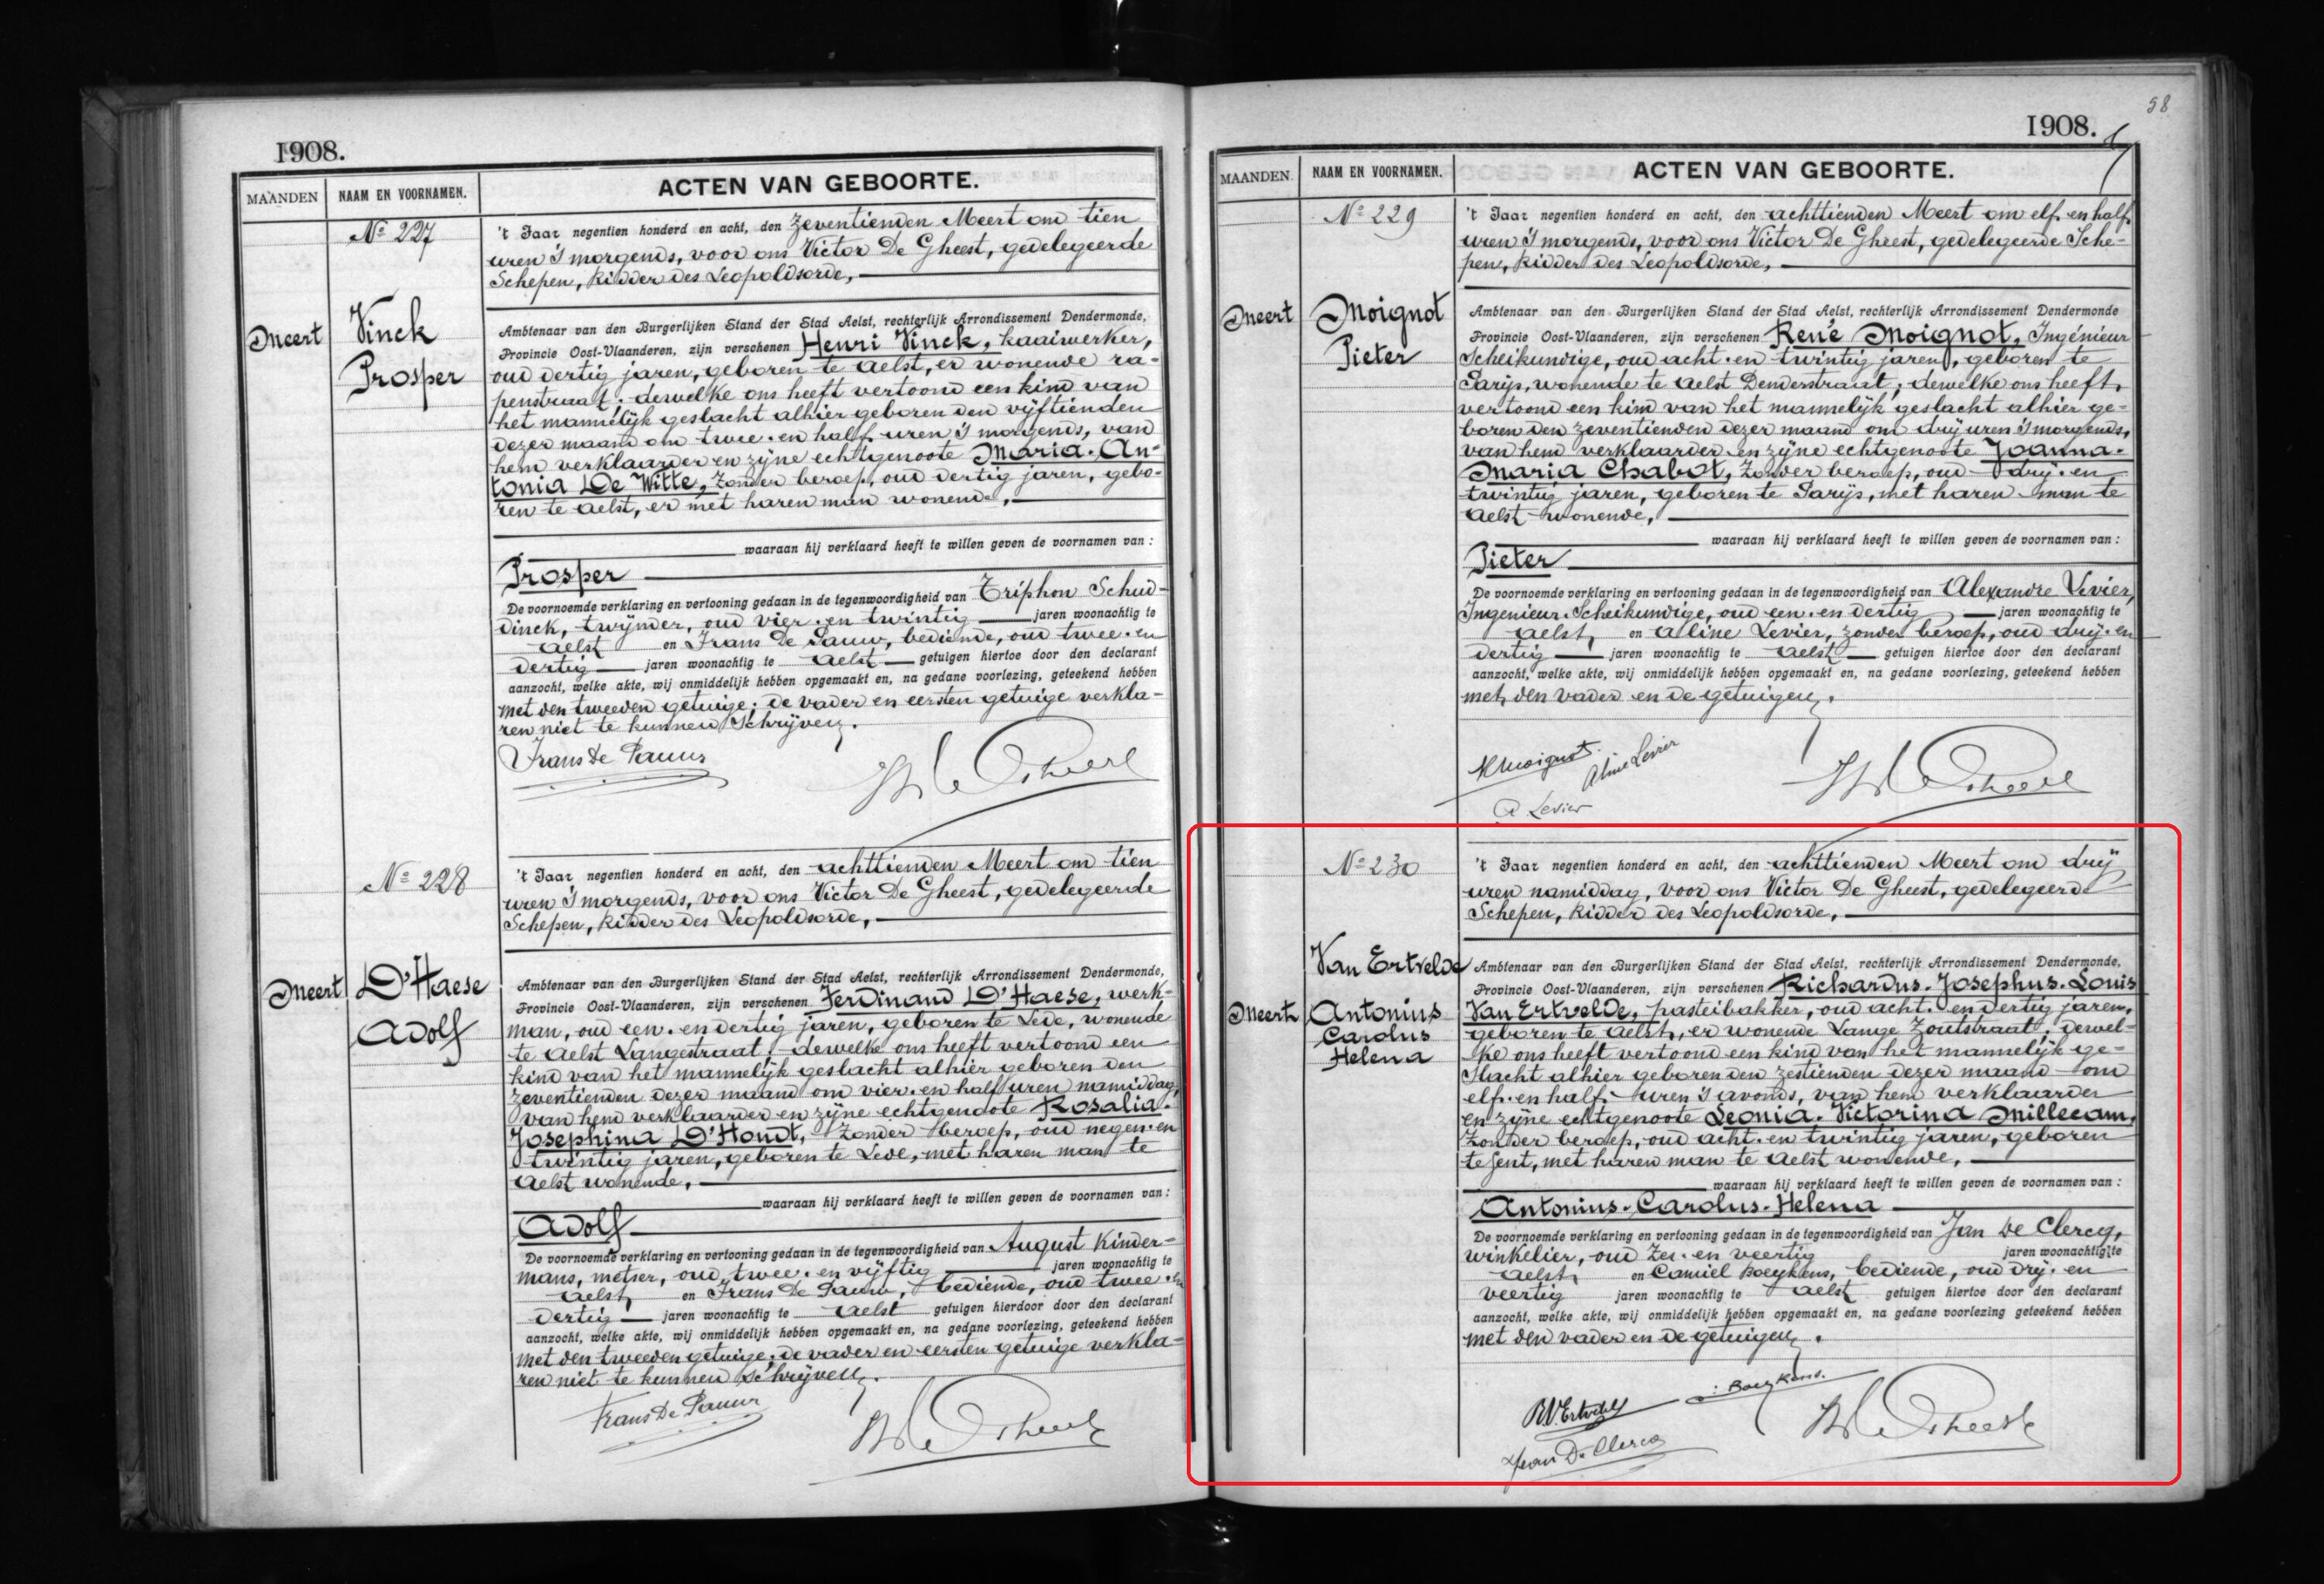 1908.
MAANDEN
NAAM EN VOORNAMEN.
ACTEN VAN GEBOORTE.
Nº 227
Meert
Vinck
Prosper
't Jaar negentien honderd en acht, den zeventienden Meert om tien
uren 's morgends, voor ons Victor De Gheest, gedelegeerde
Schepen, Ridder des Leopoldsorde,
Ambtenaar van den Burgerlijken Stand der Stad Aelst, rechterlijk Arrondissement Dendermonde,
Provincie Oost-Vlaanderen, zijn verschenen Henri Vinck, kaaiwerker,
oud dertig jaren, geboren te Aelst, er wonende ra-
penstraat; dewelke ons heeft vertoond een kind van
het mannelijk geslacht alhier geboren den vijftienden
dezer maand om twee en half uren 's morgends, van
hem verklaarder en zijne echtgenoote Maria-An-
tonia De Witte, zonder beroep, oud dertig jaren, gebo-
ren te Aelst, er met haren man wonende,
waaraan hij verklaard heeft te willen geven de voornamen van :
Prosper
De voornoemde verklaring en vertooning gedaan in de tegenwoordigheid van Triphon Schud-
dinck, twijnder, oud vier en twintig jaren woonachtig te
Aelst en Frans De Pauw, bediende, oud twee en
dertig jaren woonachtig te Aelst getuigen hiertoe door den declarant
aanzocht, welke akte, wij onmiddelijk hebben opgemaakt en, na gedane voorlezing, geteekend hebben
met den tweeden getuige; de vader en eersten getuige verkla-
ren niet te kunnen schrijven.
Frans De Pauw
Nº 228
Meert
D'Haese
Adolf
't Jaar negentien honderd en acht, den achttienden Meert om tien
uren 's morgends, voor ons Victor De Gheest, gedelegeerde
Schepen, Ridder des Leopoldsorde,
Ambtenaar van den Burgerlijken Stand der Stad Aelst, rechterlijk Arrondissement Dendermonde,
Provincie Oost-Vlaanderen, zijn verschenen Ferdinand D'Haese, werk-
man, oud een en dertig jaren, geboren te Lede, wonende
te Aelst Langestraat; dewelke ons heeft vertoond een
kind van het mannelijk geslacht alhier geboren den
zeventienden dezer maand om vier en half uren namiddag,
van hem verklaarder en zijne echtgenoote Rosalia-
Josephina D'Hondt, zonder beroep, oud negen en
twintig jaren, geboren te Lede, met haren man te
Aelst wonende,
waaraan hij verklaard heeft te willen geven de voornamen van :
Adolf
De voornoemde verklaring en vertooning gedaan in de tegenwoordigheid van August Kinder-
mans, metser, oud twee en vijftig jaren woonachtig te
Aelst en Frans De Pauw, bediende, oud twee en
dertig jaren woonachtig te Aelst getuigen hierdoor door den declarant
aanzocht, welke akte, wij onmiddelijk hebben opgemaakt en, na gedane voorlezing, geteekend hebben
met den tweeden getuige; de vader en eersten getuige verkla-
ren niet te kunnen schrijven.
Frans De Pauw
58
1908.
MAANDEN.
NAAM EN VOORNAMEN.
ACTEN VAN GEBOORTE.
Nº 229
Meert
Moignot
Pieter
't Jaar negentien honderd en acht, den achttienden Meert om elf en half
uren 's morgends, voor ons Victor De Gheest, gedelegeerde Sche-
pen, Ridder des Leopoldsorde,
Ambtenaar van den Burgerlijken Stand der Stad Aelst, rechterlijk Arrondissement Dendermonde
Provincie Oost-Vlaanderen, zijn verschenen René Moignot, Ingénieur
Scheikundige, oud acht en twintig jaren, geboren te
Parijs, wonende te Aelst Denderstraat; dewelke ons heeft
vertoond een kind van het mannelijk geslacht alhier ge-
boren den zeventienden dezer maand om drij uren 's morgends,
van hem verklaarder en zijne echtgenoote Joanna-
Maria Chabot, zonder beroep, oud drij en
twintig jaren, geboren te Parijs, met haren man te
Aelst wonende,
waaraan hij verklaard heeft te willen geven de voornamen van :
Pieter
De voornoemde verklaring en vertooning gedaan in de tegenwoordigheid van Alexandre Levier,
Ingenieur-Scheikundige, oud een en dertig jaren woonachtig te
Aelst en Aline Levier, zonder beroep, oud drij en
dertig jaren woonachtig te Aelst getuigen hiertoe door den declarant
aanzocht, welke akte, wij onmiddelijk hebben opgemaakt en, na gedane voorlezing, geteekend hebben
met den vader en de getuigen.
RMoignot
Aline Levier
A Levier
Nº 230
Meert
Van Ertvelde
Antonius
Carolus
Helena
't Jaar negentien honderd en acht, den achttienden Meert om drij
uren namiddag, voor ons Victor De Gheest, gedelegeerde
Schepen, Ridder des Leopoldsorde,
Ambtenaar van den Burgerlijken Stand der Stad Aelst, rechterlijk Arrondissement Dendermonde,
Provincie Oost-Vlaanderen, zijn verschenen Richardus-Josephus-Louis
Van Ertvelde, pasteibakker, oud acht en dertig jaren,
geboren te Aelst, er wonende Lange Zoutstraat; dewel-
ke ons heeft vertoond een kind van het mannelijk ge-
slacht alhier geboren den zestienden dezer maand om
elf en half uren 's avonds, van hem verklaarder
en zijne echtgenoote Leonia-Victorina Millecam,
zonder beroep, oud acht en twintig jaren, geboren
te Gent, met haren man te Aelst wonende,
waaraan hij verklaard heeft te willen geven de voornamen van :
Antonius-Carolus-Helena
De voornoemde verklaring en vertooning gedaan in de tegenwoordigheid van Jan De Clercq,
winkelier, oud zes en veertig jaren woonachtig te
Aelst en Camiel Boeykens, bediende, oud drij en
veertig jaren woonachtig te Aelst getuigen hiertoe door den declarant
aanzocht, welke akte, wij onmiddelijk hebben opgemaakt en, na gedane voorlezing geteekend hebben
met den vader en de getuigen.
RVErtvelde
Boeykens.
Jean De Clercq